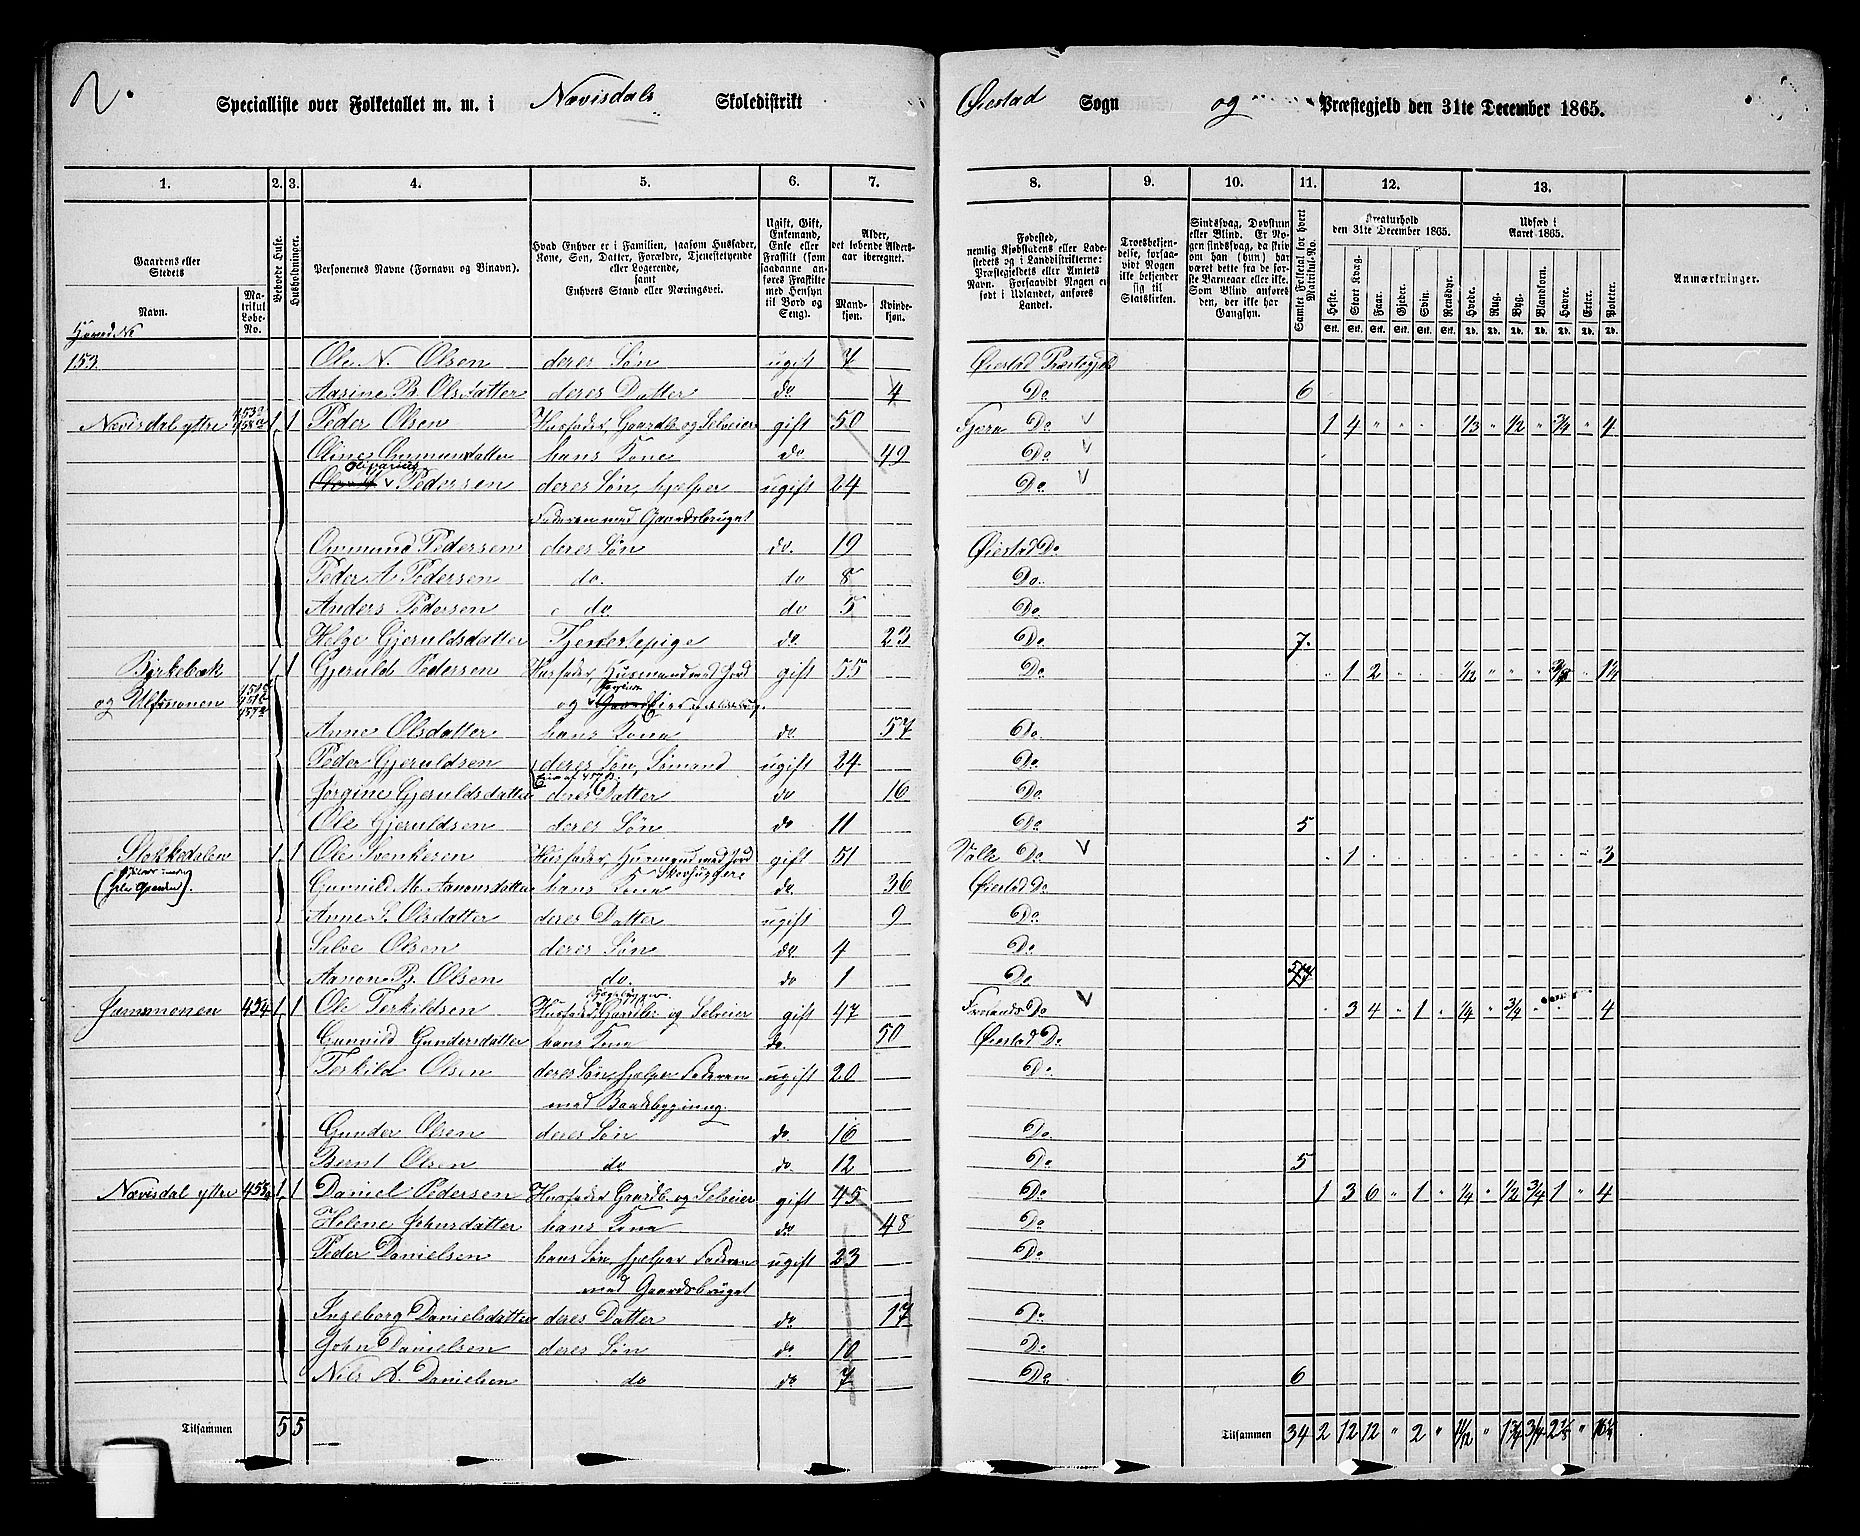 2.
Specialliste over Folketallet m. m. i Nævisdals Skoledistrikt
Øiestad Sogn og Præstegjeld den 31te December 1865.
1. 2. 3. 4. 5. 6. 7. 8. 9. 10. 11. 12. 13.
Gaardens eller Stedets
Navn. Matrikul Løbe-No.
Beboede Huse.
Husholdninger.
Personernes Navne (Fornavn og Binavn).
Hvad Enhver er i Familien, saasom Husfader, Kone, Søn, Datter, Forældre, Tjenestetyende eller Logerende, samt Enhvers Stand eller Næringsvei.
Ugift, Gift, Enkemand, Enke eller Fraskilt (som saadanne anføres Fraskilte med Hensyn til Bord og Seng).
Alder, det løbende Alders-aar iberegnet.
Mandkjøn. Kvindekjøn.
Fødested, nemlig Kjøbstadens eller Ladestedets og i Landdistrikterne: Præstegjeldets eller Amtets Navn. Forsaavidt Nogen er født i Udlandet, anføres Landet.
Troesbekjendelse, forsaavidt Nogen ikke bekjender sig til Statskirken.
Sindssvag, Døvstum eller Blind. Er Nogen sindssvag, da skrives om han (hun) har været dette fra de første Barneaar eller ikke. Som Blind anføres den, der ikke har Gangsyn.
Samlet Folketal for hvert Matrikul-No.
Kreaturhold den 31te December 1865.
Heste. Stort Kvæg. Faar. Gjeder. Svin. Rensdyr.
Udsæd i Aaret 1865.
Hvede. Rug. Byg. Blandkorn. Havre. Erter. Poteter.
Anmærkninger.
153 Ole N. Olsen deres Søn ugift 7 Øiestad Præstegjeld
Aasine B. Olsdatter deres Datter do 4 Do 6
Nævisdal yttre 1 1 Peder Olsen Husfader, Gaardb. og Selveier gift 50 Do 1 4 " " 1/3 " 1/2 " 3/4 " 4
Oline Ommundsdatter hans Kone do 49 Do
Pedersen deres Søn, hjelper ugift 24 Do
Faderen med Gaardsbruget
Ommund Pedersen deres Søn do. 19 Øiestad Do
Peder A. Pedersen do. do 8 Do.
Anders Pedersen do do 5 Do
Helge Gjeruldsdatter Tjenestepige do. 23 Do 7.
Birkebæk 1 1 Gjeruld Pedersen Husfader, Husmand med Jord gift 55 Do 1 2 1/2 " "
og
Anne Olsdatter hans Kone do 57 Do
Peder Gjeruldsen deres Søn, Sømand ugift 24 Do
Jørgine Gjeruldsdatter deres Datter do 16 Do
Ole Gjeruldsen deres Søn do 11 Do 5
Stokkedalen 1 1 Ole Svenkesen Husfader, Husmand med Jord gift 51 Valle Do 1 3
Skovhuggere
Gunvild M. Aanonsdatter hans Kone do. 36 Øiestad Do
Anne S. Olsdatter deres Datter ugift 9 Do
Salve Olsen deres Søn do 4 Do
Aanon B. Olsen do. do 1 Do
454 1 1 Ole Terkildsen Husfader, Gaardbr. og Selveier gift 47 Do 3 4 " 1 " 1/4 " 3/4 4
Gunvild Gundersdatter hans Kone do. 50 Øiestad Do
Terkild Olsen deres Søn, hjelper Faderen ugift 20 Do
med Baadsbygning.
Gunder Olsen deres Søn do 16 Do
Bernt Olsen do do 12 Do 5
Nævisdal yttre 1 1 Daniel Pedersen Husfader, Gaardb. og Selveier gift 45 Do 1 3 6 " 1 " 1/4 " 1/2 3/4 1 " 4
Helene Johnsdatter hans Kone do 48 Do
Peder Danielsen hans Søn, hjelper Faderen ugift 23 Do
med Gaardsbruget
Ingeborg Danielsdatter deres Datter do 17 Do
John Danielsen deres Søn do 10 Do
Nils A. Danielsen do do 7 Do 6
Tilsammen 5 5
Tilsammen 34 2 12 12 " 2 "